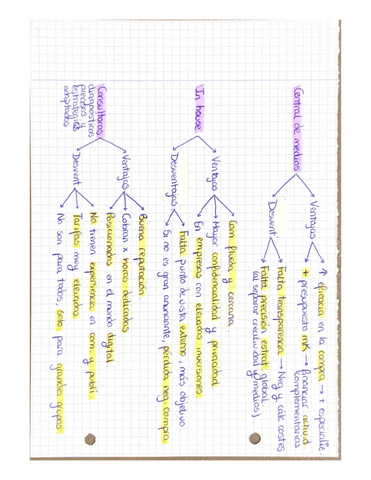 Central de medios
Ventajas
↑ eficacia en la compra → + especialie
+ presupuesto → financiar activid
complementarias
Desvent
Falta transparencia → Neg y cálc costes
Falta precisión estrat global
(al separar creatividad y medios)
In house
Ventajas
Com fluida y cercana
Mayor confidencialidad y privacidad
En empresas con elevadas inversiones
Desventajas
Falta punto de vista externo, más objetivo
Si no es gran anunciante, pérdida neg compra
Consultoras
diagnosticos
precisos y
estrategias
adaptadas
Ventajas
Buena reputación
Cobran x horas dedicadas
Posicionadas en el mundo digital
Desvent
No tienen experiencia en com y publi
Tarifas muy elevadas
No son para todos, solo para grandes grupos